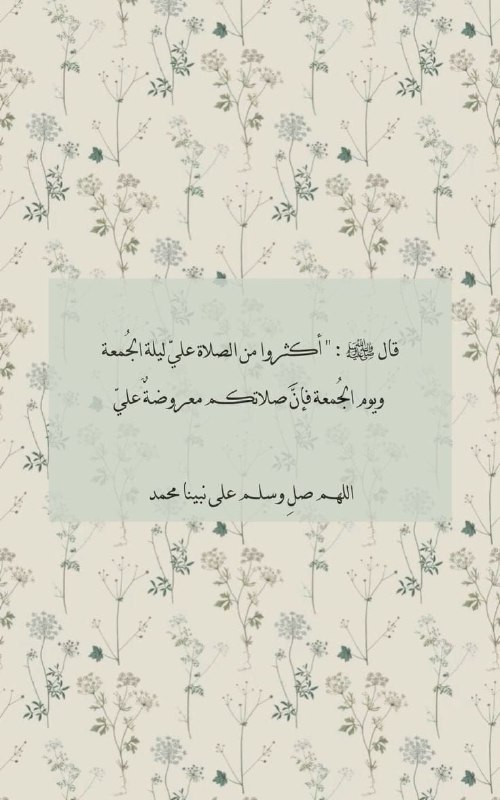 قال ﷺ : " أكثروا من الصلاة عليّ ليلة الجُمعة
ويوم الجُمعة فإنَّ صلاتكم معروضةٌ عليّ
اللهم صلِ وسلم على نبينا محمد